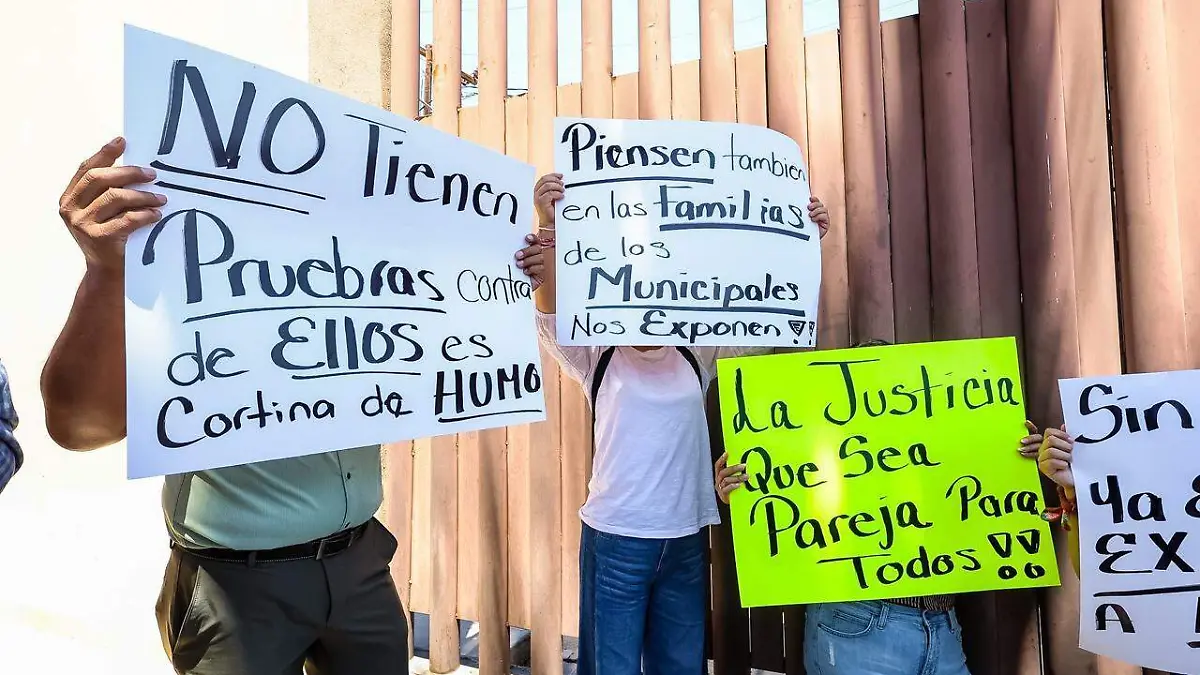 NO Tienen
Pruebras contra
de Ellos es
Cortina de HUMO
Piensen tambien
en las Familias
de los
Municipales
Nos Exponen !!
La Justicia
Que Sea
Pareja Para
Todos !!
Sin
Ya
EX
A